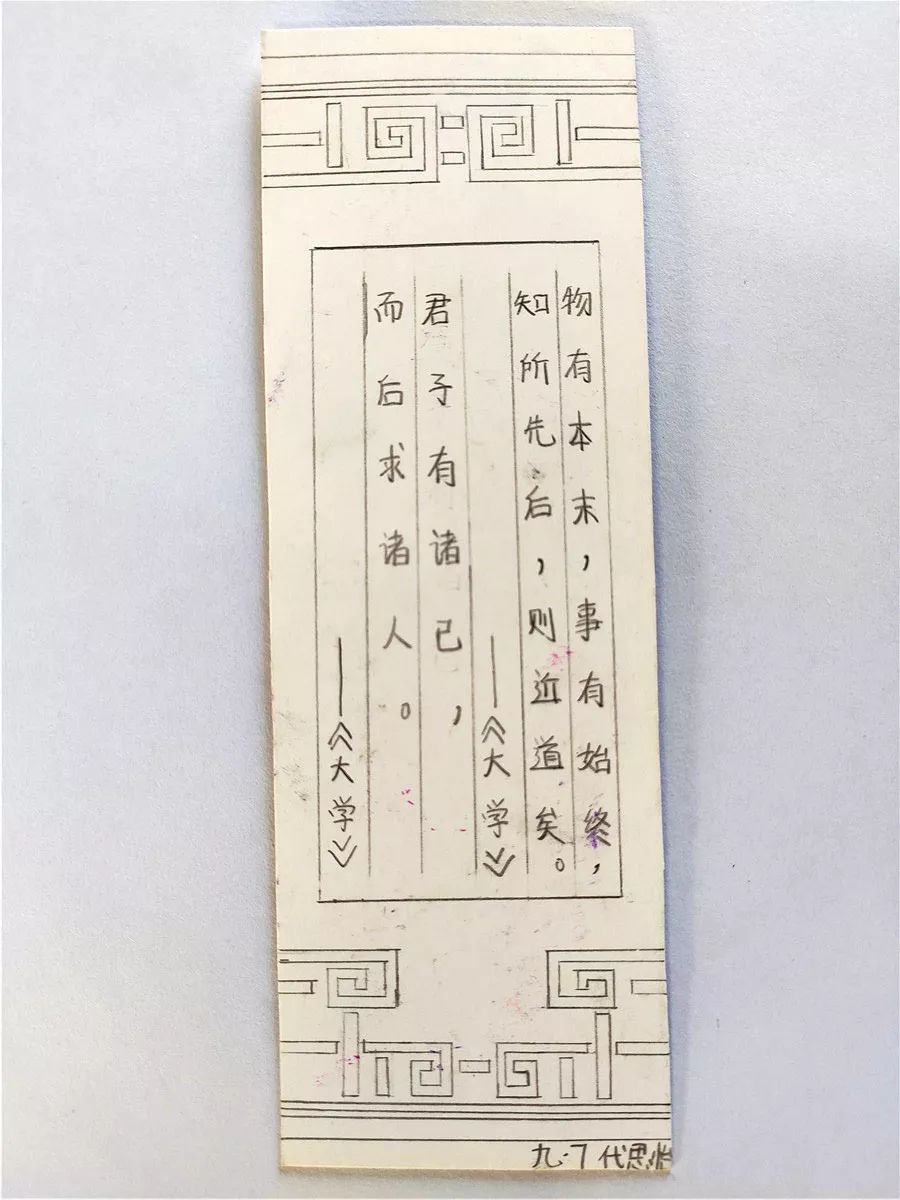 物有本末，事有始终，
知所先后，则近道矣。
——《大学》
君子有诸己，
而后求诸人。
——《大学》
九·7 代思怡